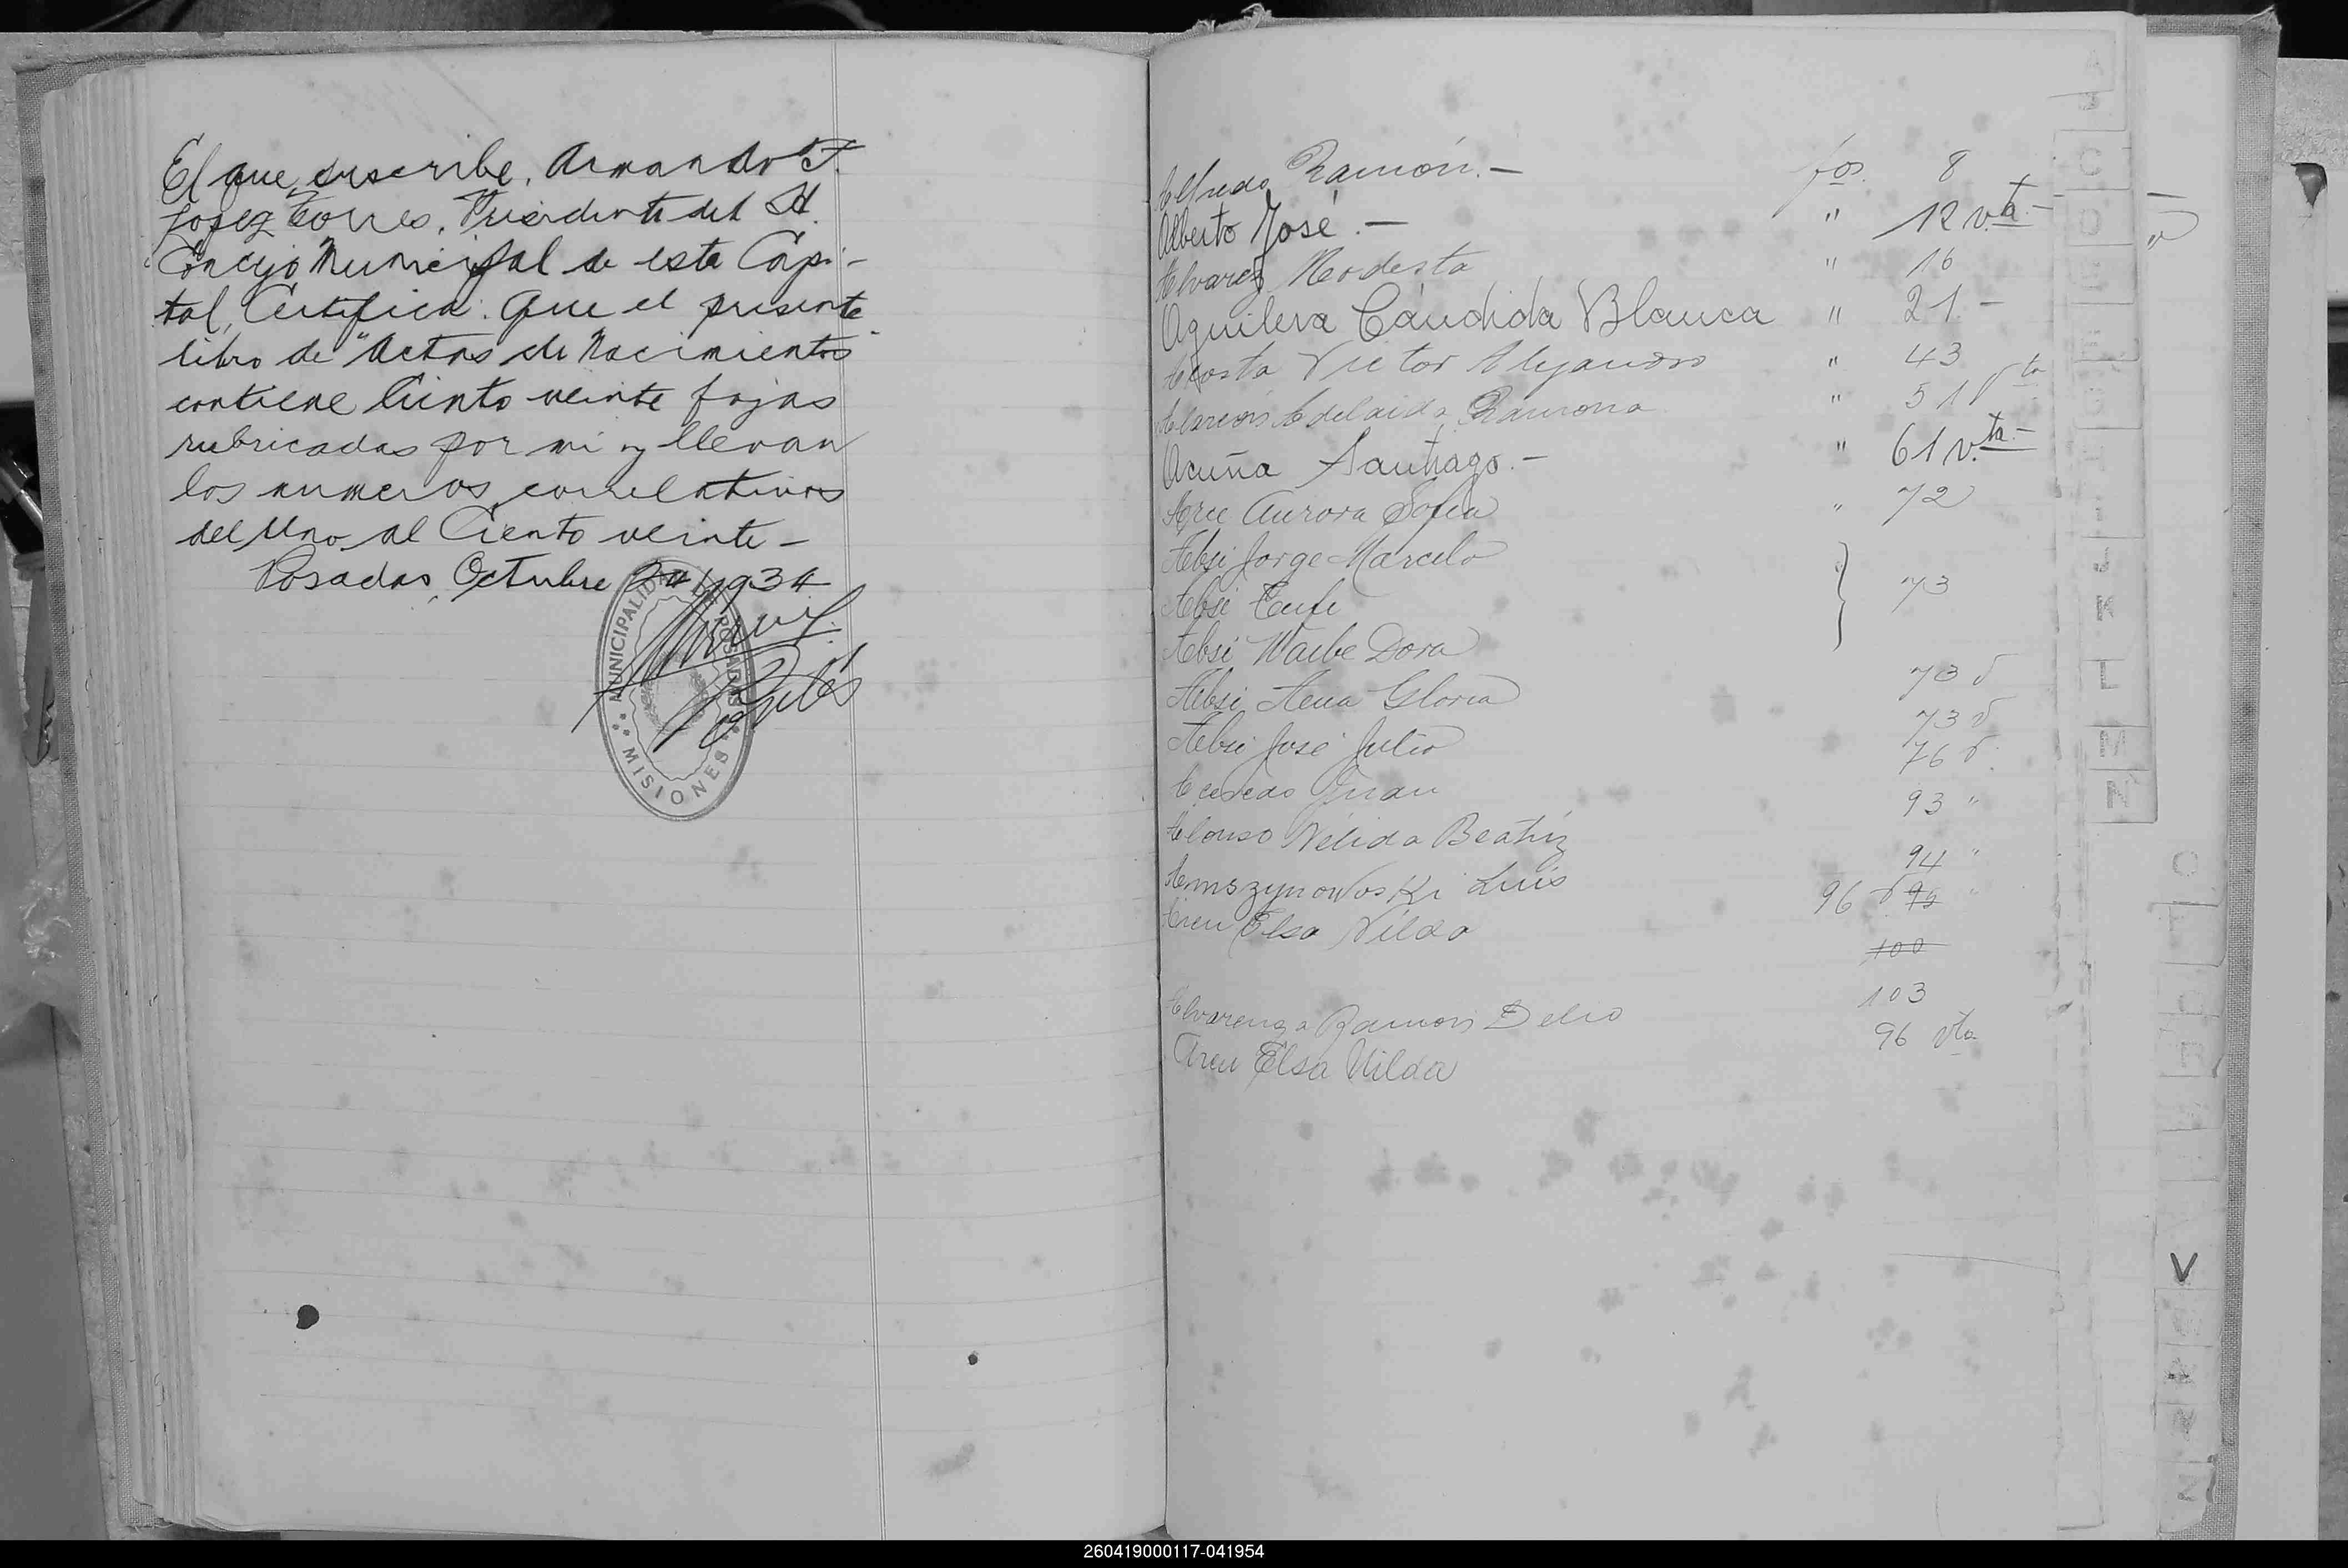 El que suscribe, Armando F.
Lopez Torres, Presidente del H.
Concejo Municipal de esta Capi-
tal, Certifica: Que el presente
libro de "Actas de Nacimientos"
contiene Ciento veinte fojas
rubricadas por mi y llevan
los numeros correlativos
del Uno al Ciento veinte -
Posadas, Octubre 24/1934
MUNICIPALIDAD DE POSADAS
MISIONES
Alfredo Ramón. - fos. 8
Alberto José. - " 12 vta. -
Alvarez Modesta " 16
Aguilera Cándida Blanca " 21 -
Acosta Victor Alejandro " 43
Alarcón Adelaida Ramona " 51 vta
Acuña Santiago. - " 61 vta. -
Arce Aurora Sofia " 72
Absi Jorge Marcelo
Absi } 73
Absi Dora
Absi Gloria 73 v
Absi José Julio 73 v
Juan 76 v.
Alonso Nélida Beatriz 93 "
Amszynowski Luis 94 "
Areu Elsa Nilda 96 v 95 "
100
Alvarenga Ramón Delio 103
Areu Elsa Nilda 96 vta
A
B
C
D
J
K
L
M
N
O
P
Q
R
V
Z
260419000117-041954